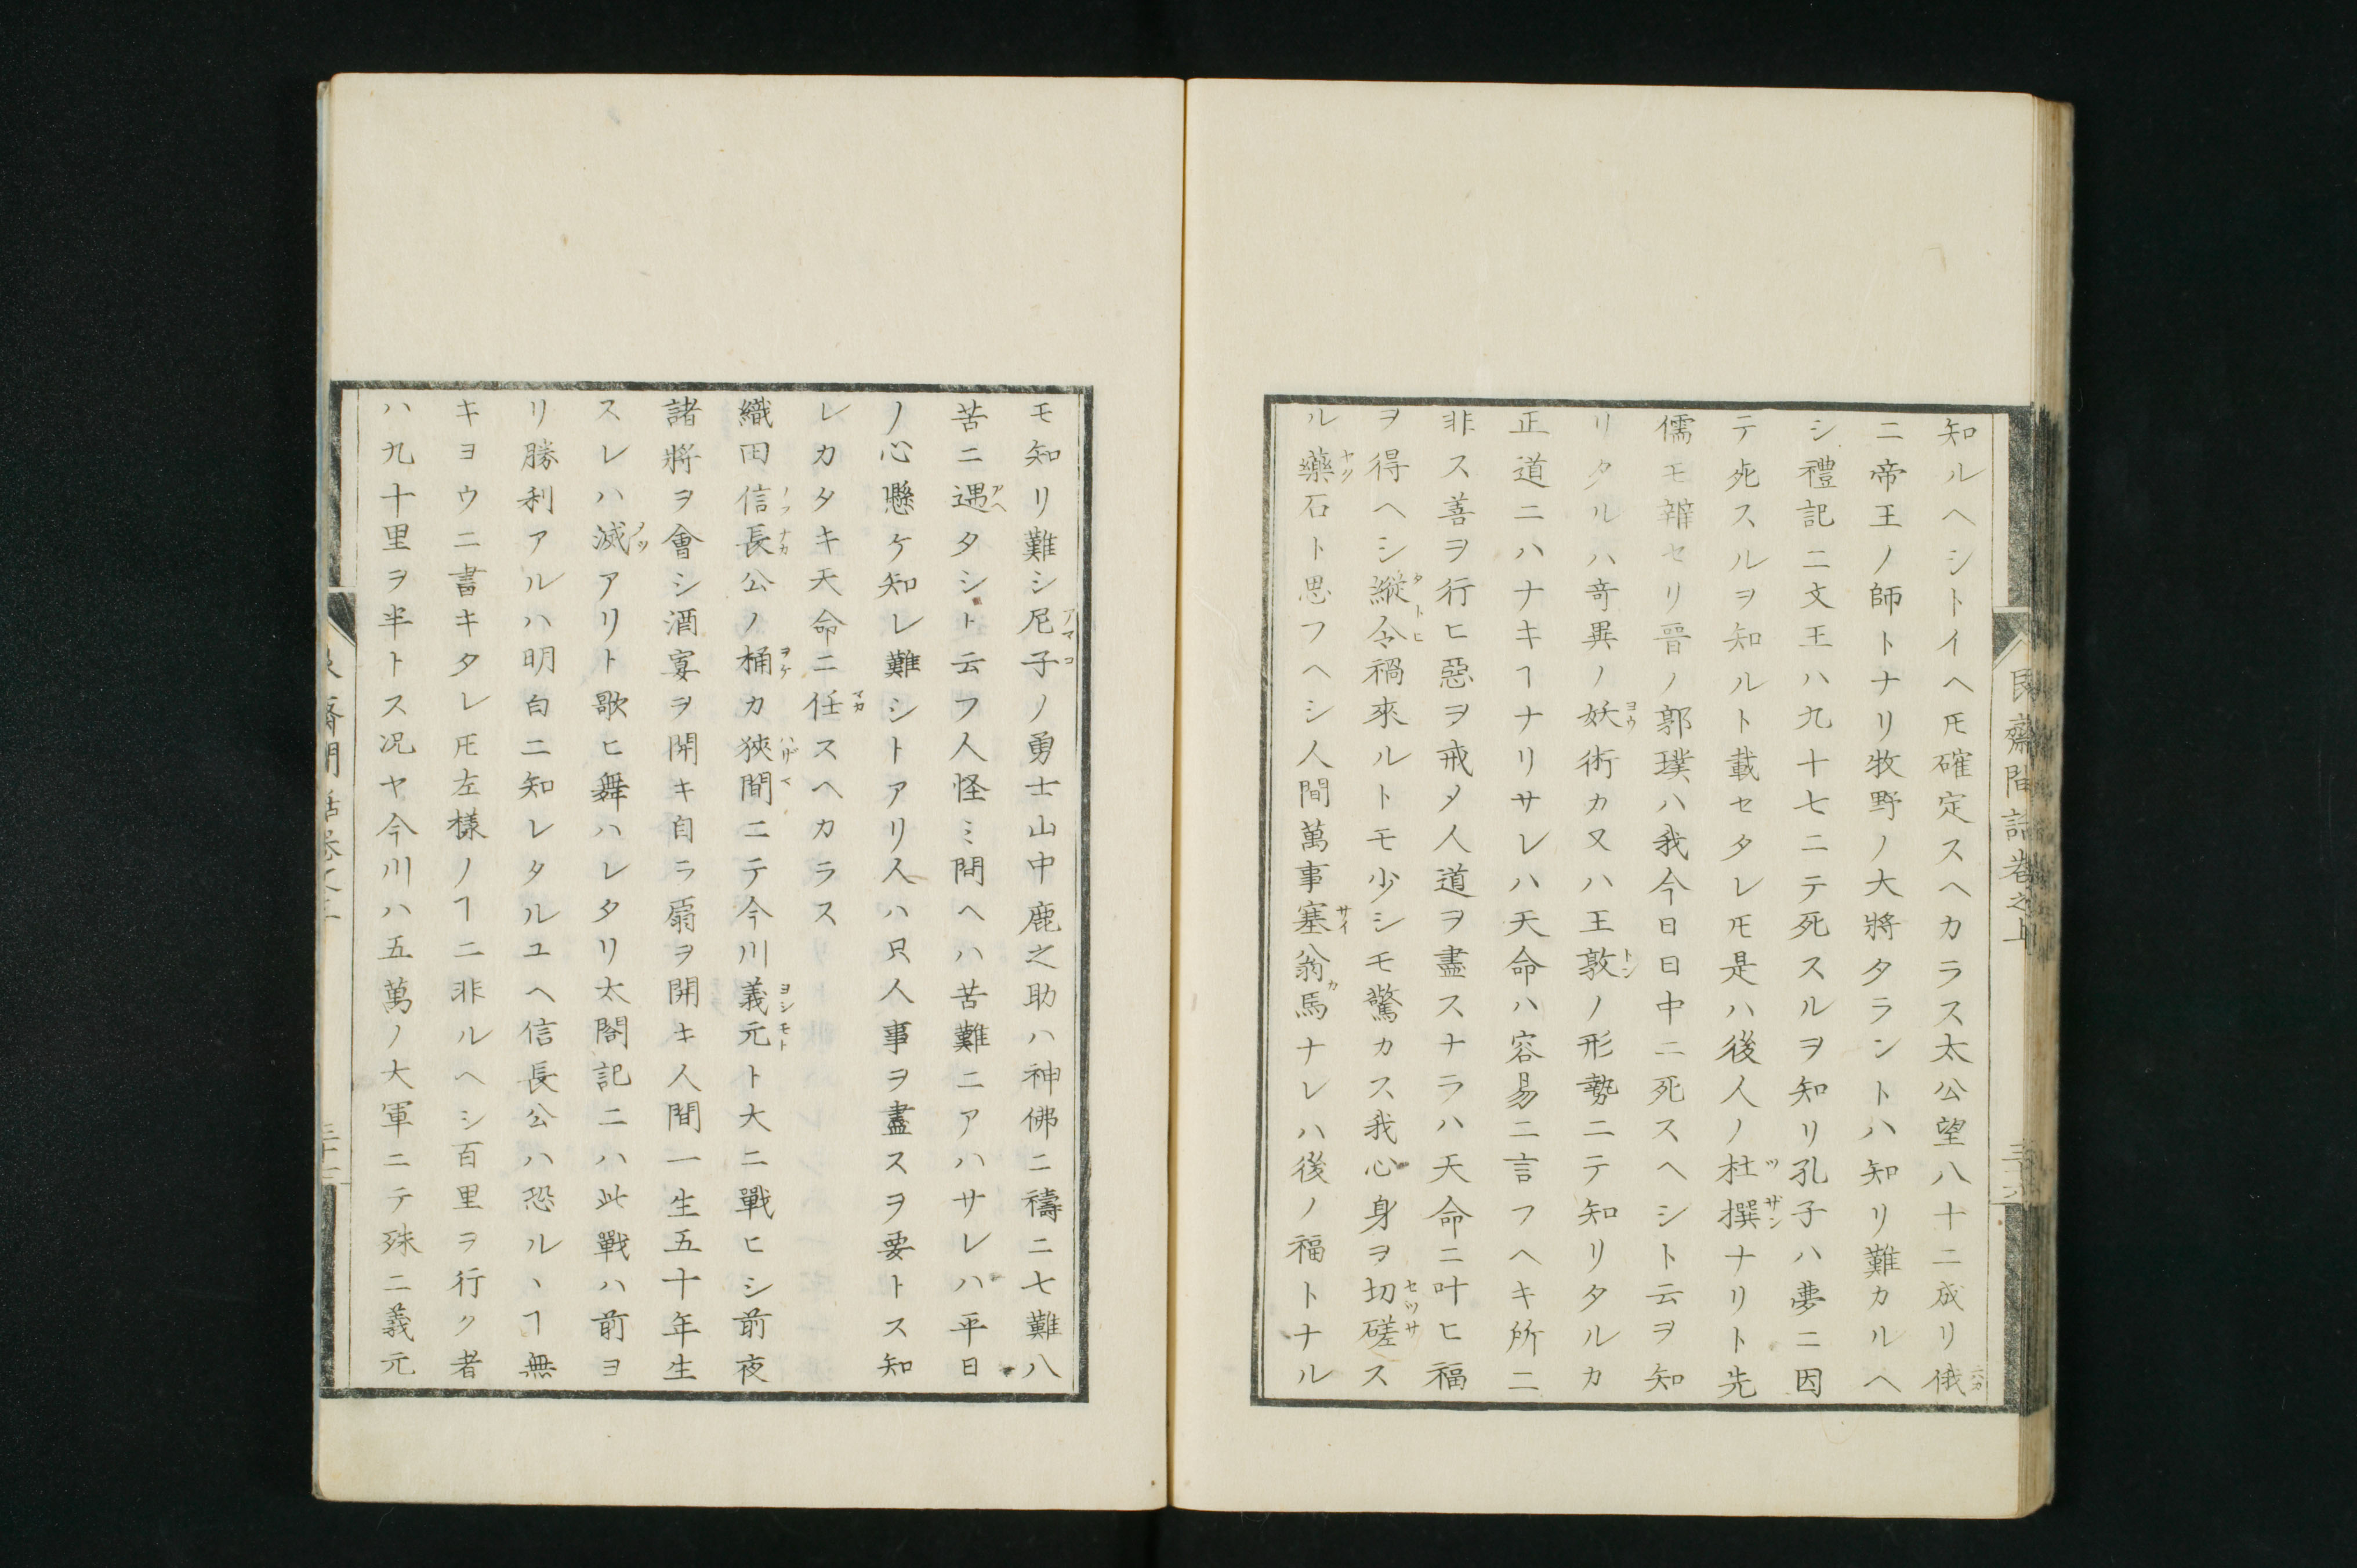 知ルヘシトイヘ𪜈確定スヘカラス太公望八十二成リ俄
ニ帝王ノ師トナリ牧野ノ大將タラントハ知リ難カルヘ
シ禮記ニ文王ハ九十七ニテ死スルヲ知リ孔子ハ夢ニ因
テ死スルヲ知ルト載セタレ𪜈是ハ後人ノ杜撰ナリト先
儒モ辯セリ晋ノ郭璞ハ我今日日中ニ死スヘシト云ヲ知
リタルハ竒異ノ妖術カ又ハ王敦ノ形勢ニテ知リタルカ
正道ニハナキヿナリサレハ天命ハ容易ニ言フヘキ所ニ
非ス善ヲ行ヒ惡ヲ戒メ人道ヲ盡スナラハ天命ニ叶ヒ福
ヲ得ヘシ縱令禍來ルトモ少シモ驚カス我心身ヲ切磋ス
ル藥石ト思フヘシ人間萬事塞翁馬ナレハ後ノ福トナル
モ知リ難シ尼子ノ勇士山中鹿之助ハ神佛ニ禱ニ七難八
苦ニ遇タシト云フ人怪ミ問ヘハ苦難ニアハサレハ平日
ノ心懸ケ知レ難シトアリ人ハ只人事ヲ盡スヲ要トス知
レカタキ天命ニ任スヘカラス
織田信長公ノ桶カ狹間ニテ今川義元ト大ニ戰ヒシ前夜
諸將ヲ會シ酒宴ヲ開キ自ラ扇ヲ開キ人間一生五十年生
スレハ滅アリト歌ヒ舞ハレタリ太閤記ニハ此戰ハ前ヨ
リ勝利アルハ明白ニ知レタルユヘ信長公ハ恐ルヽヿ無
キヨウニ書キタレ𪜈左樣ノヿニ非ルヘシ百里ヲ行ク者
ハ九十里ヲ半トス况ヤ今川ハ五萬ノ大軍ニテ殊ニ義元